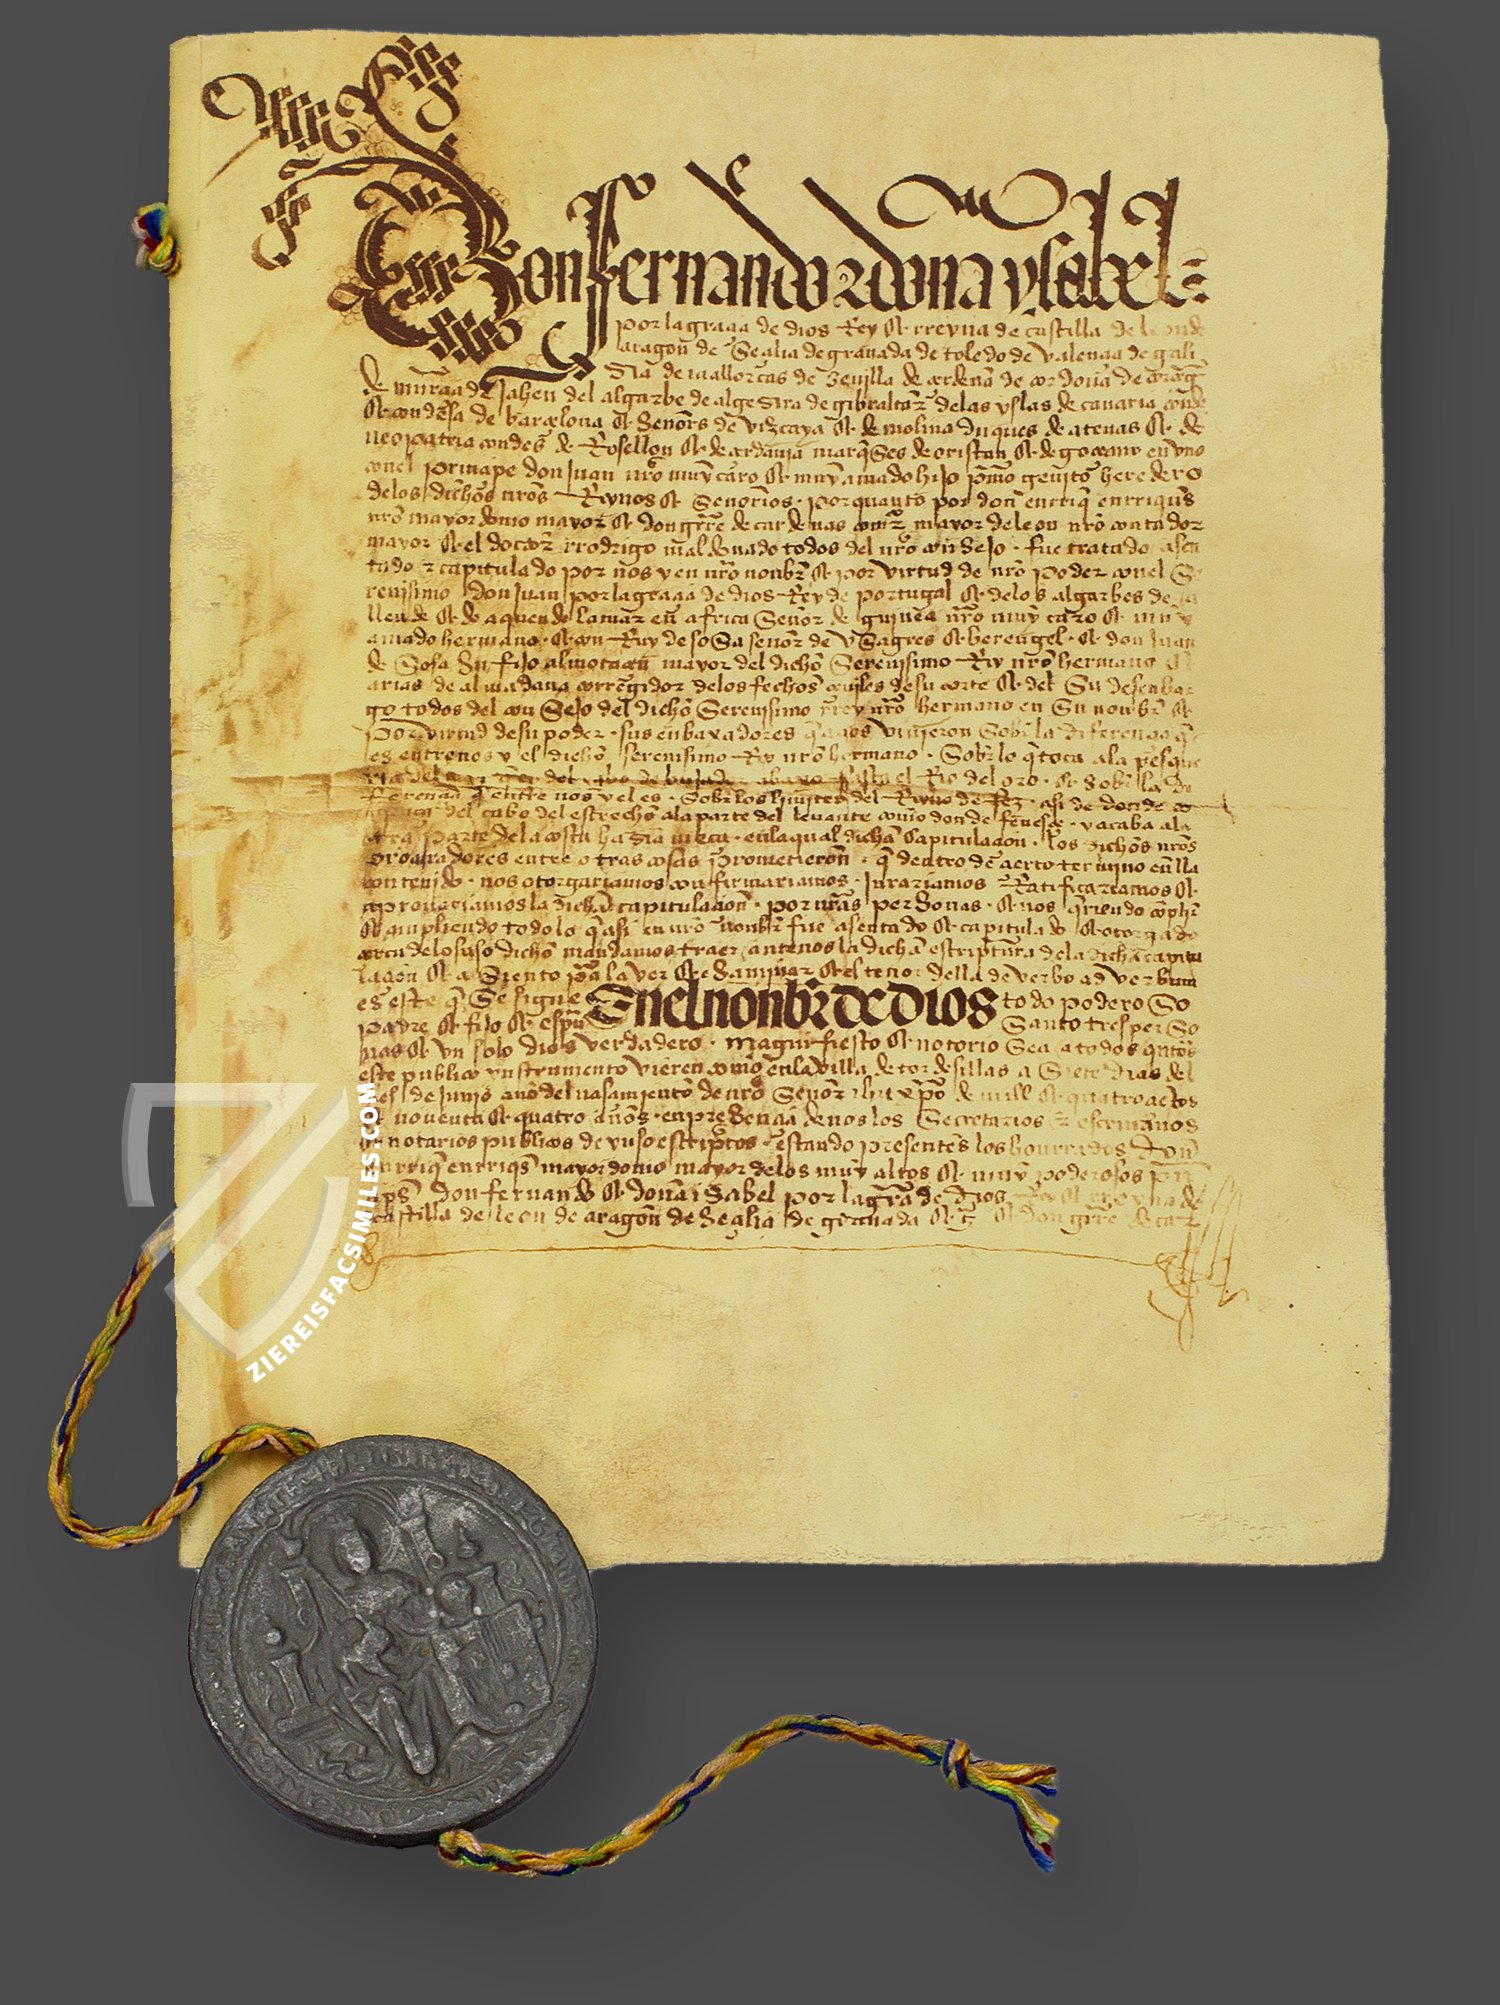 Don fernando ⁊ doña ysabel
por la graçia de dios Rey & rreyna de castilla de leon de
aragon de Seçilia de granada de toledo de valençia de gali
zia de mallorcas de Sevilla de çerdeña de cordoua de corçega
de murçia de Jahen del algarbe de algezira de gibraltar de las yslas de canaria conde
& condesa de barçelona & Señors de vizcaya & de molina duques de atenas & de
neopatria condes de Rosellon & de çerdania marqses de oristan & de goçeano en vno
con el prinçipe don Juan nro muy caro & muy amado hijo primo genito heredero
de los dichos nros Reynos & Señorios. por quanto por don enrriq enrriqus
nro mayordomo mayor & don gtrre de cardenas comr mayor de leon nro contador
mayor & el doctor rrodrigo maldonado todos del nro consejo. fue tratado asen
tado ⁊ capitulado por nos y en nro nonbr & por virtud de nro poder con el Se
renisimo don Juan por la graçia de dios Rey de portugal & de los algarbes de a
llende & de aquende la mar en africa Señor de guinea nro muy caro & muy
amado hermano. & con Ruy de sosa señor de vsagres & berengel. & don Juan
de Sosa su fijo almotaçen mayor del dicho Serenisimo Rey nro hermano &
arias de almadana corregidor de los fechos çeuiles de su corte & del Su desenbar
go todos del conSejo del dicho Serenisimo rrey nro hermano en Su nonbr &
por virtud de su poder. sus enbaxadores q a nos vinieron Sobr la diferençia q
es entre nos y el dicho serenisimo Rey nro hermano. Sobr lo q toca a la pesque
ria del mar del cabo de bujador abaxo fasta el Rio del oro. & Sobr la di
ferençia q entre nos y el es. Sobr los limites del Reyno de fez. asi de donde co
mjença del cabo del estrecho a la parte del leuante como donde feneçe. y acaba a la
otra parte de la costa hazia meça. en la qual dicha Capitulaçion. los dichos nros
procuradores entre otras cosas prometieron. q dentro de çierto termino en lla
contenido. nos otorgariamos confirmariamos. Jurariamos Ratificariamos &
aprouariamos la dicha capitulaçion. por nras personas. & nos qriendo conplir
& cunpliendo todo lo q asi en nro nonbr fue asentado & capitulado & otorgado
çerca de lo suso dicho mandamos traer ante nos la dicha escriptura de la dicha capitu
laçion & aSiento pa la ver & eSaminar & el tenor della de verbo ad verbum
es este q Se sigue En el nonbr de dios todo poderoSo
padre & fijo & espu Santo tres perSo
nas & vn solo dios verdadero. Magnifiesto & notorio Sea a todos qntos
este publico ynstrumento vieren como en la villa de tordesillas a Siete dias del
mes de Junio año del nasçimiento de nro Señor ihu xpo de mill & quatroçientos
& nouenta & quatro años. en preSençia de nos los Secretarios ⁊ escriuanos
& notarios publicos de yuso escriptos. estando presentes los honrrados Don
enrriq enrriqs mayordomo mayor de los muy altos & muy poderosos prin
çips Don fernando & doña ySabel por la gra de Dios Rey & rreyna de
castilla de leon de aragon de Seçilia de granada & ç & don gtrre de car
ZIEREISFACSIMILES.COM